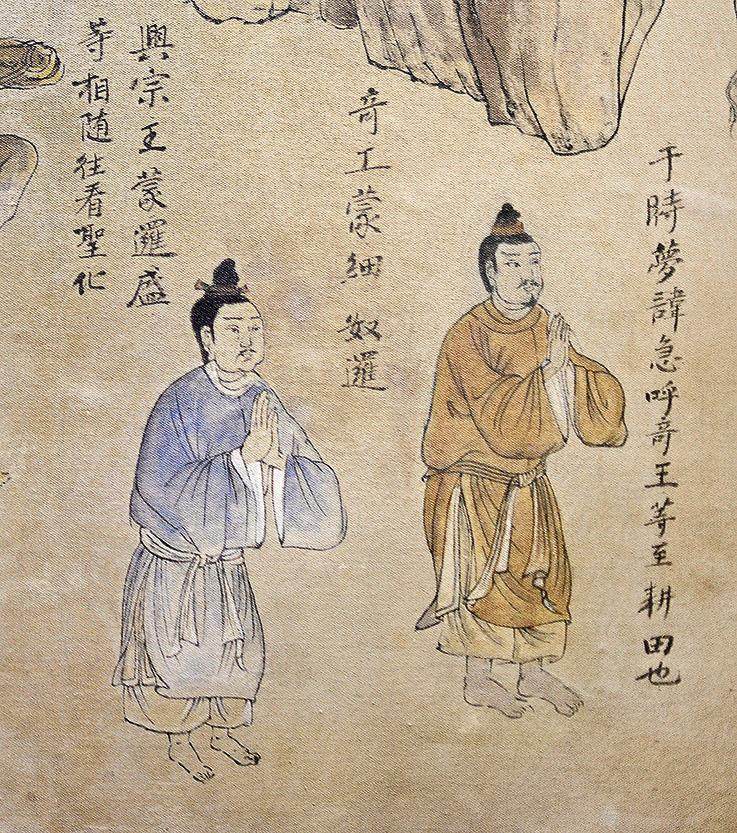 于時夢諱急呼奇王等至耕田也
奇王蒙細奴邏
興宗王蒙邏盛
等相随往看聖化